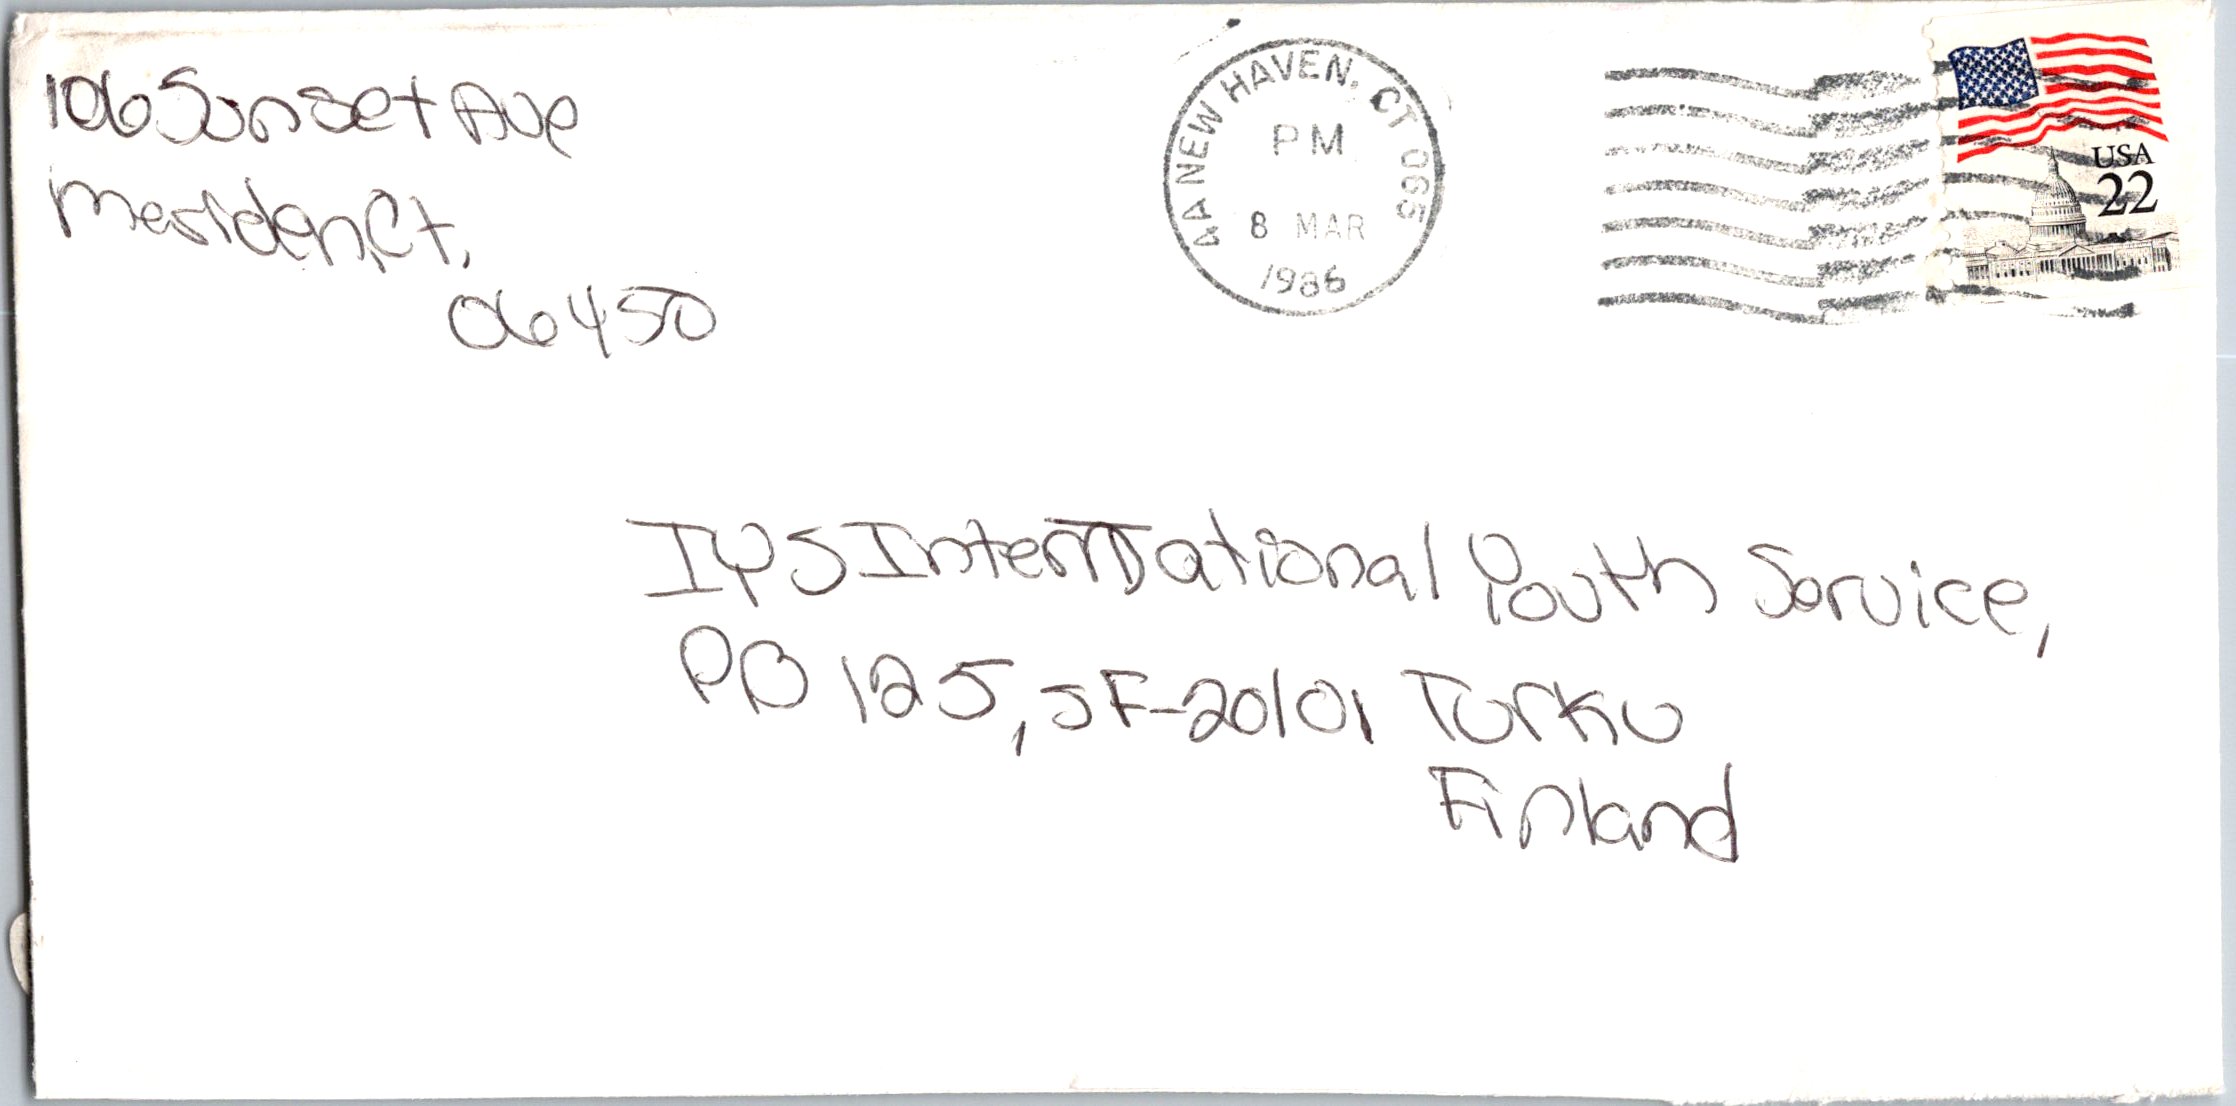 106 Sunset Ave
Meriden, Ct,
06450
AA NEW HAVEN, CT 065
PM
8 MAR
1986
USA
22
IYS International Youth Service,
PB 125, SF-20101 Turku
Finland